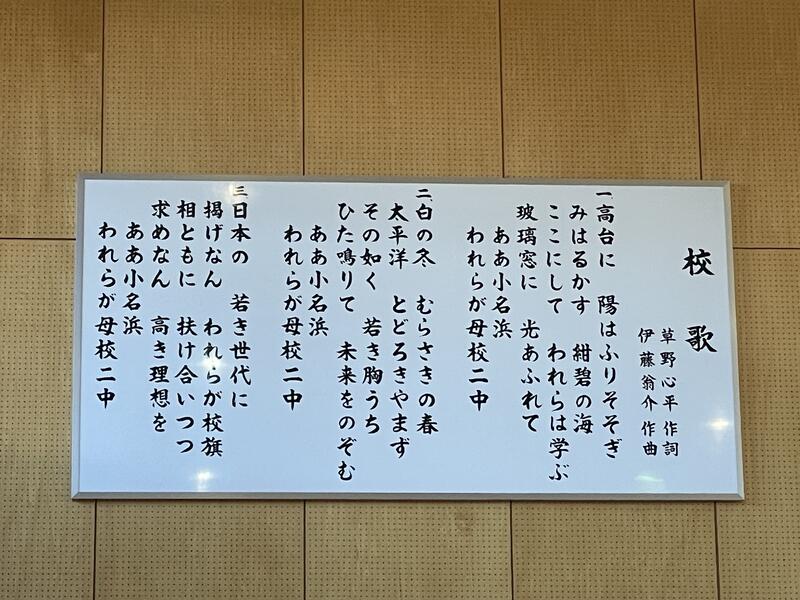 校歌
草野心平 作詞
伊藤翁介 作曲
一 高台に 陽はふりそそぎ
みはるかす 紺碧の海
ここにして われらは学ぶ
玻璃窓に 光あふれて
ああ小名浜
われらが母校二中
二 白の冬 むらさきの春
太平洋 とどろきやまず
その如く 若き胸うち
ひた鳴りて 未来をのぞむ
ああ小名浜
われらが母校二中
三 日本の 若き世代に
掲げなん われらが校旗
相ともに 扶け合いつつ
求めなん 高き理想を
ああ小名浜
われらが母校二中